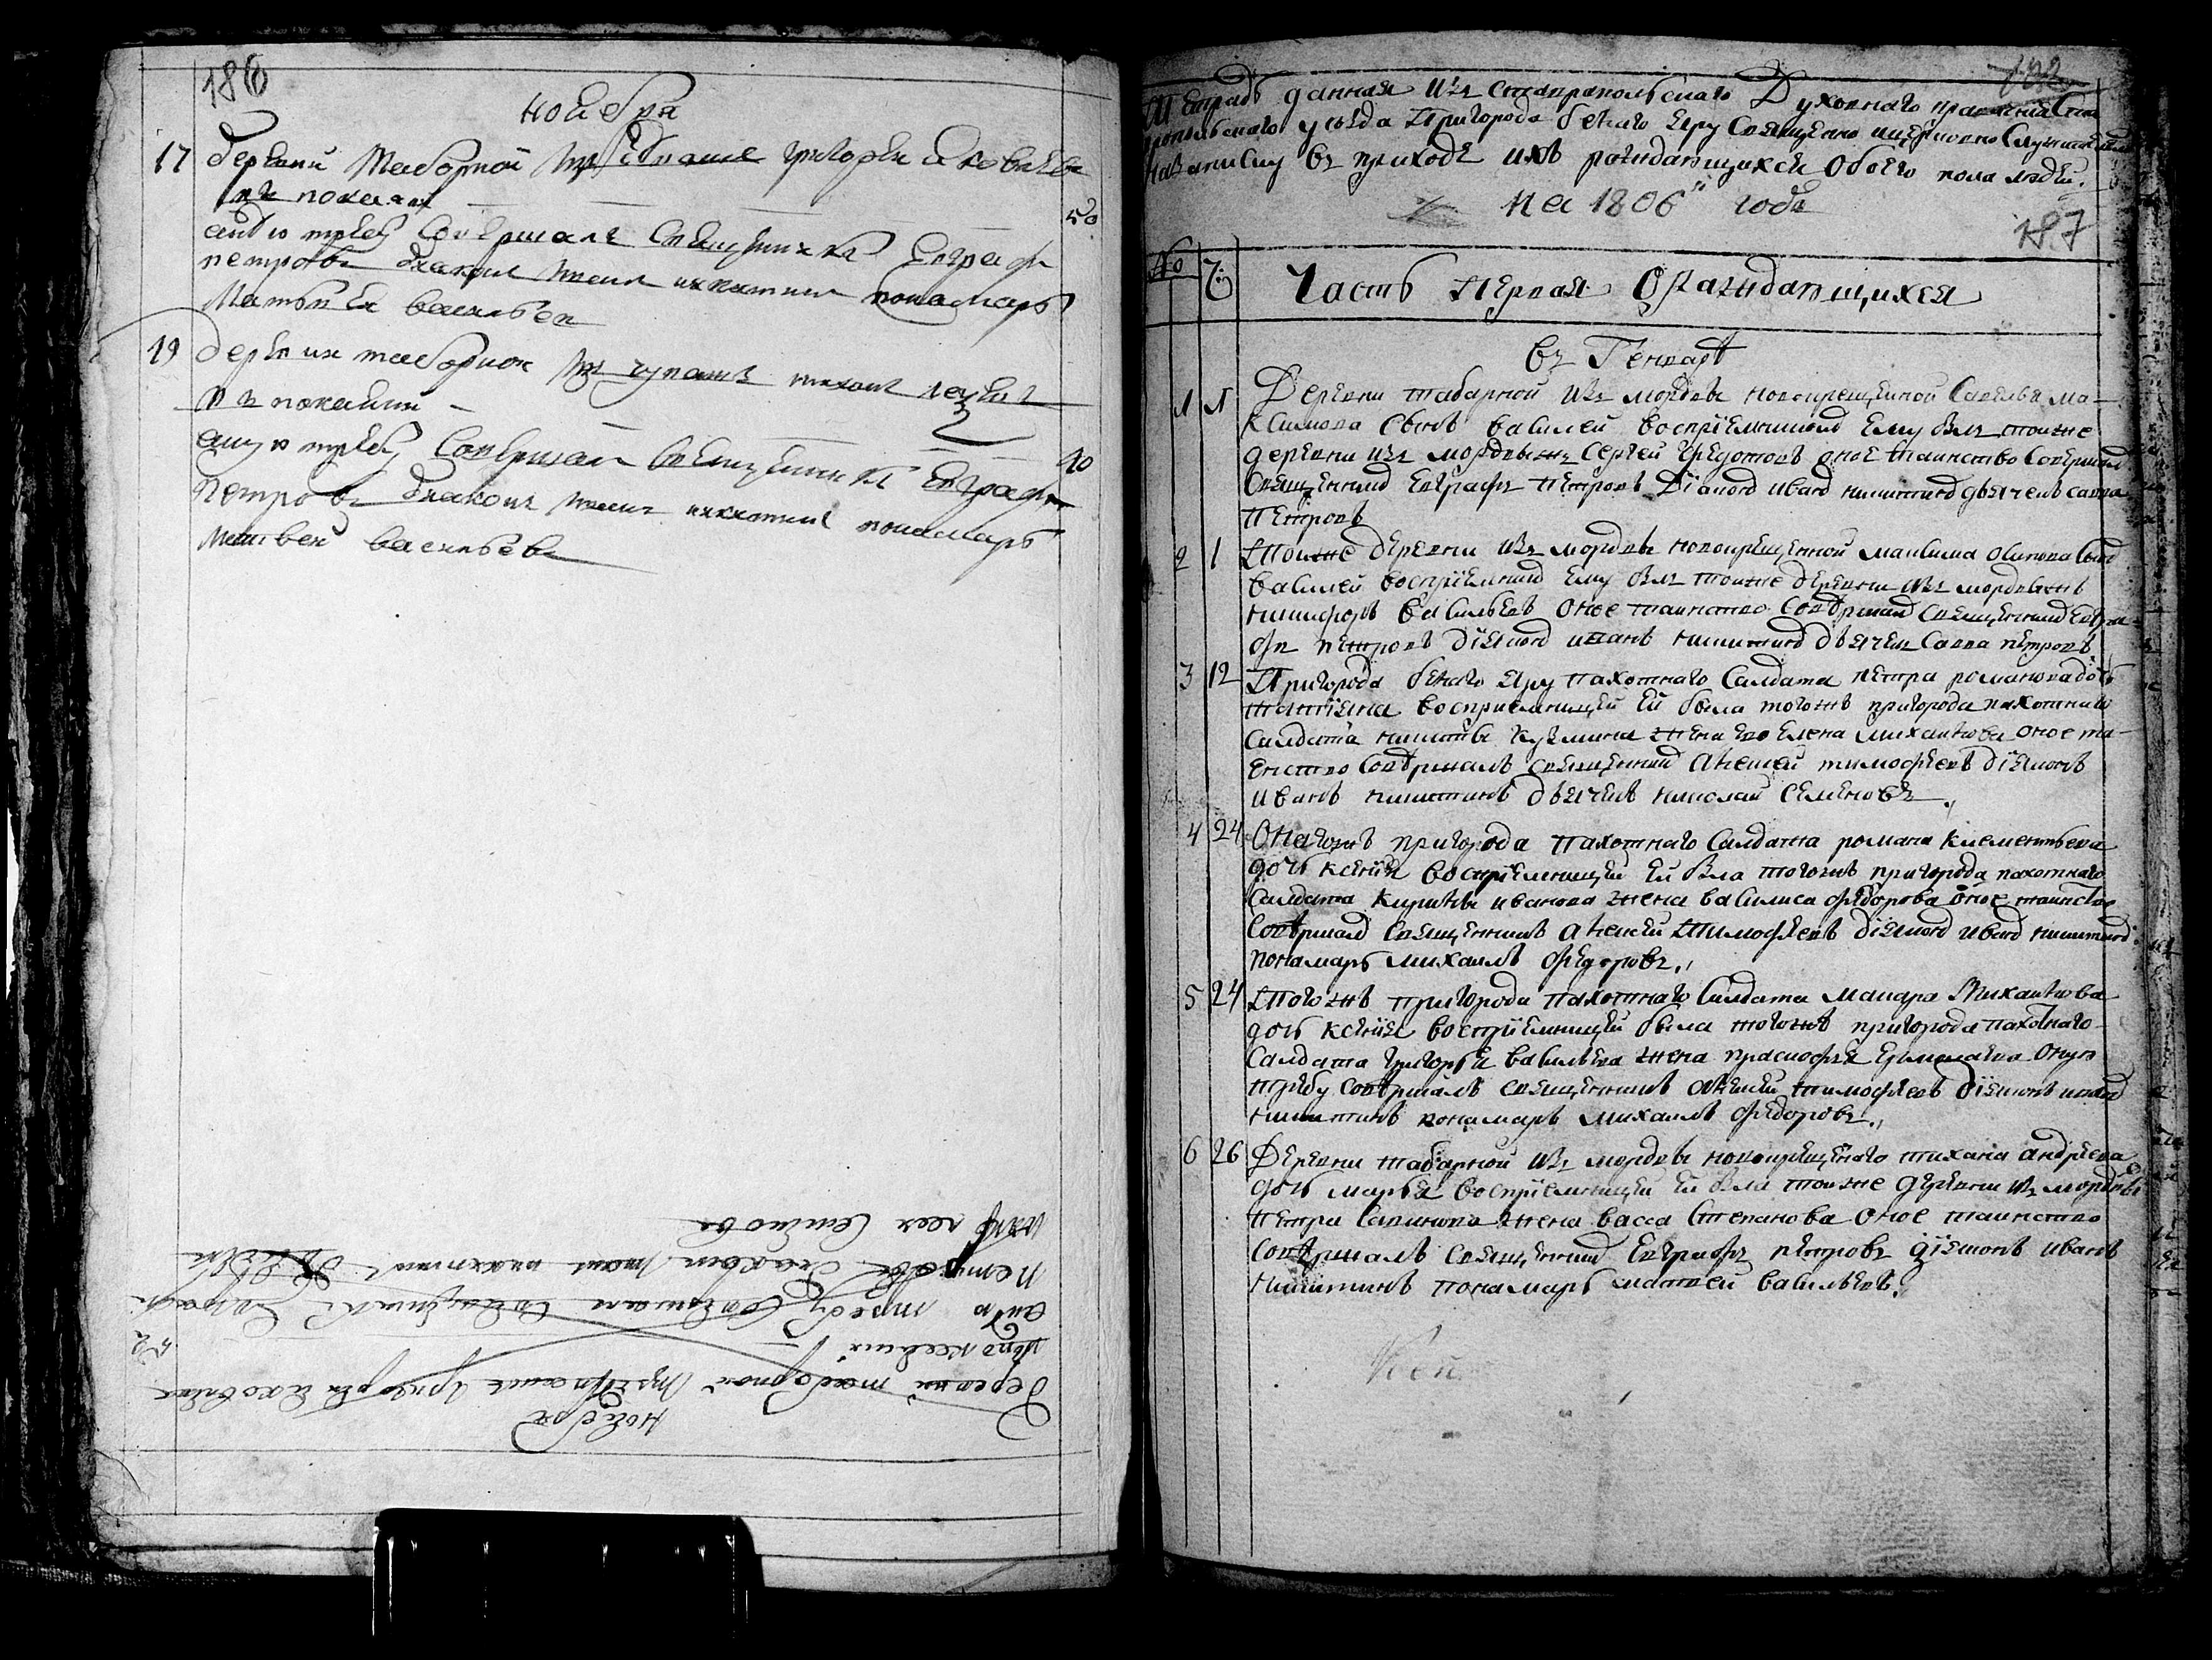 186
ноября
17 деревни Таборной григорьи яковлевъ
въ покаянии
50
сию требу совершалъ священникъ Евграфъ
петровъ диаконъ иванъ никитинъ понамарь
Матвей васильев
19 деревни таборной
в покаянии
40
сию требу совершал священникъ Евграфъ
Петровъ диаконъ иванъ никитинъ понамарь
матвей васильевъ
ноября
деревни таборной григорьи яковлев
сию требу совершалъ священникъ Евграфъ
петровъ диаконъ иванъ никитинъ
Тетрадь данная изъ ставропольскаго Духовнаго правления став
ропольскаго уезда Пригорода белаго яру священно и церковно служителямъ
на записку въ приходе ихъ раждающихся обоего пола людей.
на 1806 годъ
187
№ Чи Часть первая о раждающихся
въ Генваре
1 1 Деревни табарной изъ мордвы новокрещеной савелья ма-
ксимова сынъ василей восприемникомъ ему былъ тоиже
деревни изъ мордвы сергей федотовъ оное таинство совершалъ
священникъ Евграфъ петровъ дiаконъ иванъ никитинъ дьячекъ савва
петровъ
2 1 Тоиже деревни изъ мордвы новокрещенной максима осипова сынъ
василей восприемникъ ему былъ тоиже деревни изъ мордвы
никифоръ васильевъ оное таинство совѣршалъ священникъ Евгра-
фъ петровъ дiаконъ иванъ никитинъ дьячекъ савва петровъ
3 12 Пригорода белаго яру пахотнаго салдата петра романова дочь
татiяна восприемницей ей была тогожъ пригорода пахотнаго
салдата никиты кузмина жена ево елена михаилова оное та-
инство совѣршалъ священникъ алексей тимофеевъ дiаконъ
иванъ никитинъ дьячекъ николай семеновъ.,
4 24 Онагожъ пригорода пахотнаго салдата романа клементьева
дочь ксенiя восприемницей ей была тогожъ пригорода пахотнаго
салдата кирилы иванова жена василиса федорова оное таинство
совѣршалъ священникъ алексей тимофеевъ дiаконъ иванъ никитинъ
понамарь михаилъ федоровъ.,
5 24 Тогожъ пригорода пахотнаго салдата макара михаилова
дочь ксенiя восприемницей была тогожъ пригорода пахотнаго
салдата григорья васильева жена прасковья ермолаева оную
требу совѣршалъ священникъ алексей тимофеевъ дiаконъ иванъ
никитинъ понамарь михаилъ федоровъ.,
6 26 Деревни табарной изъ мордвы новокрещенаго тихана андреева
дочь марья восприемницей ей была тоиже деревни изъ мордвы
петра жена васса степанова оное таинство
совѣршалъ священникъ Евграфъ петровъ дiаконъ иванъ
никитинъ понамарь матвей васильевъ.